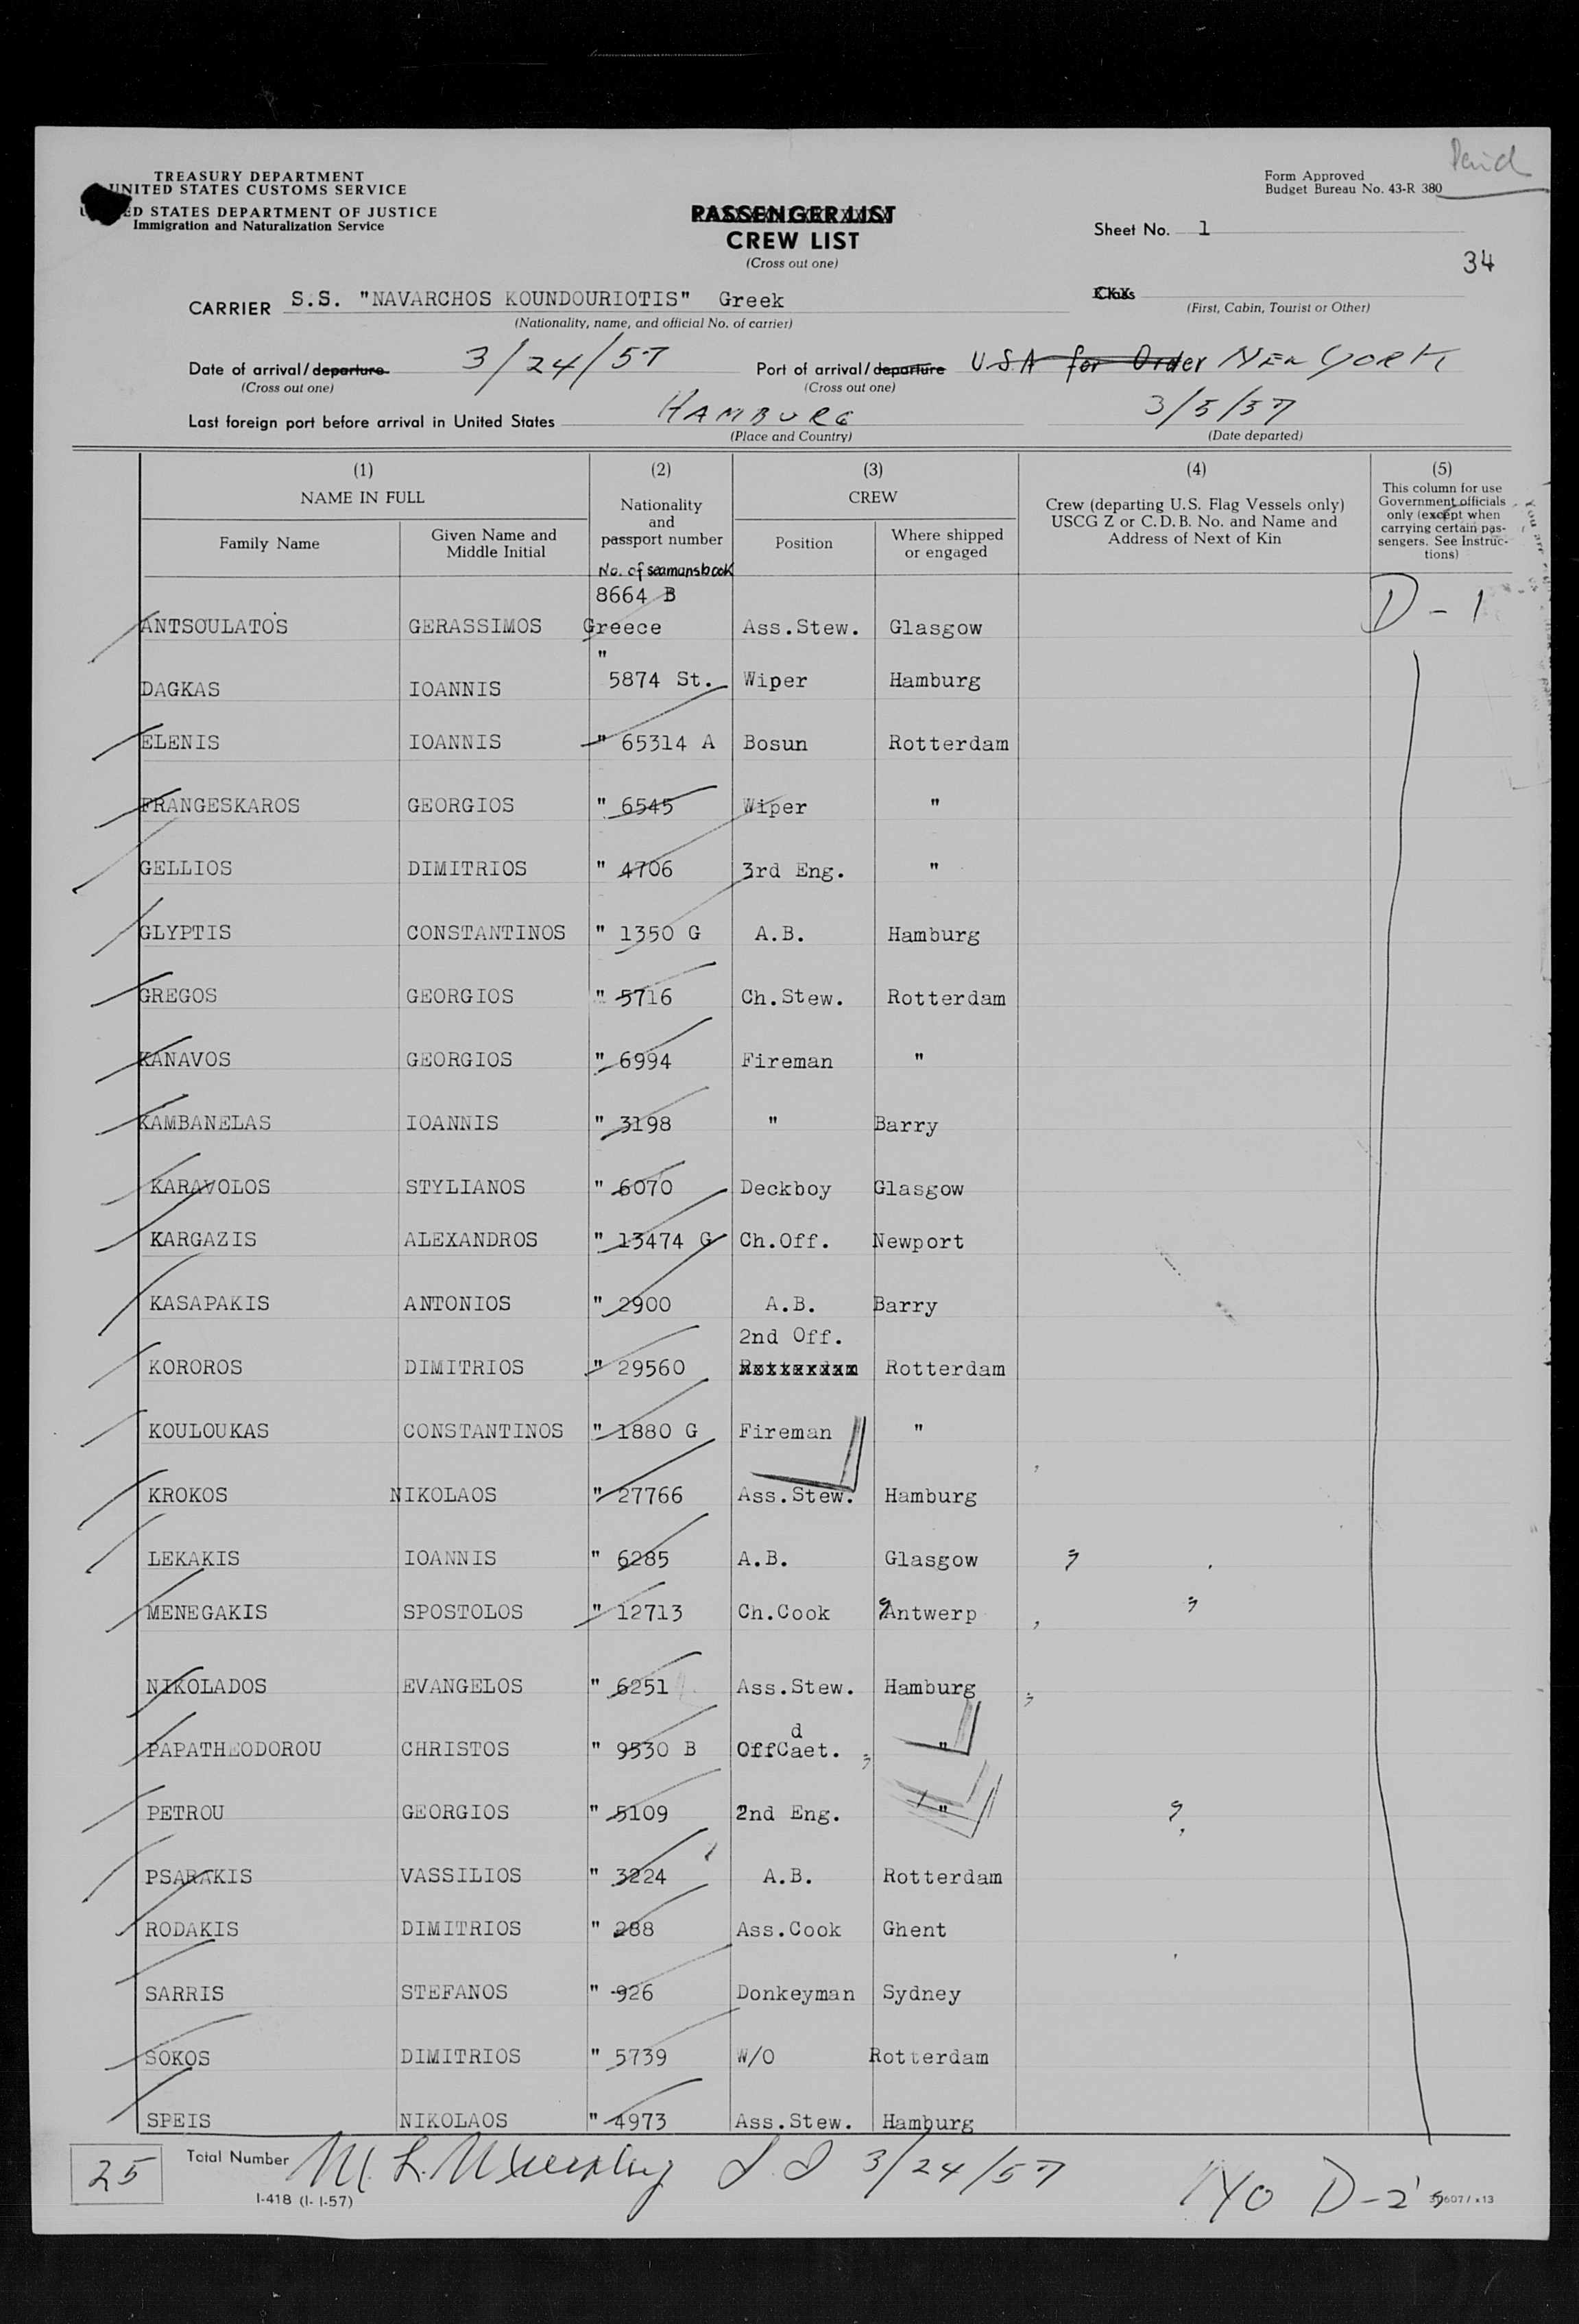 Paid
TREASURY DEPARTMENT
UNITED STATES CUSTOMS SERVICE
ED STATES DEPARTMENT OF JUSTICE
Immigration and Naturalization Service
Form Approved
Budget Bureau No. 43-R 380
PASSENGER LIST
CREW LIST
(Cross out one)
Sheet No. 1
34
CARRIER S.S. "NAVARCHOS KOUNDOURIOTIS" Greek
(Nationality, name, and official No. of carrier)
Class
(First, Cabin, Tourist or Other)
Date of arrival/departure 3/24/57 Port of arrival/departure USA for Order NEW YORK
(Cross out one) (Cross out one)
Last foreign port before arrival in United States HAMBURG 3/5/57
(Place and Country) (Date departed)
(1) (2) (3) (4) (5)
NAME IN FULL
Family Name
Given Name and
Middle Initial
Nationality
and
passport number
No. of seamansbook
CREW
Position
Where shipped
or engaged
Crew (departing U.S. Flag Vessels only)
USCG Z or C.D.B. No. and Name and
Address of Next of Kin
This column for use
Government officials
only (except when
carrying certain pas-
sengers. See Instruc-
tions)
8664 B
ANTSOULATOS GERASSIMOS Greece Ass.Stew. Glasgow D-1
DAGKAS IOANNIS " 5874 St. Wiper Hamburg
ELENIS IOANNIS " 65314 A Bosun Rotterdam
FRANGESKAROS GEORGIOS " 6545 Wiper "
GELLIOS DIMITRIOS " 4706 3rd Eng. "
GLYPTIS CONSTANTINOS " 1350 G A.B. Hamburg
GREGOS GEORGIOS " 5716 Ch.Stew. Rotterdam
KANAVOS GEORGIOS " 6994 Fireman "
KAMBANELAS IOANNIS " 3198 " Barry
KARAVOLOS STYLIANOS " 6070 Deckboy Glasgow
KARGAZIS ALEXANDROS " 13474 G Ch.Off. Newport
KASAPAKIS ANTONIOS " 2900 A.B. Barry
2nd Off.
KOROROS DIMITRIOS " 29560 Rotterdam Rotterdam
KOULOUKAS CONSTANTINOS " 1880 G Fireman "
KROKOS NIKOLAOS " 27766 Ass.Stew. Hamburg
LEKAKIS IOANNIS " 6285 A.B. Glasgow
MENEGAKIS SPOSTOLOS " 12713 Ch.Cook Antwerp
NIKOLADOS EVANGELOS " 6251 Ass.Stew. Hamburg
d
PAPATHEODOROU CHRISTOS " 9530 B OffCaet. "
PETROU GEORGIOS " 5109 2nd Eng. "
PSARAKIS VASSILIOS " 3224 A.B. Rotterdam
RODAKIS DIMITRIOS " 288 Ass.Cook Ghent
SARRIS STEFANOS " 926 Donkeyman Sydney
SOKOS DIMITRIOS " 5739 W/O Rotterdam
SPEIS NIKOLAOS " 4973 Ass.Stew. Hamburg
25 Total Number 3/24/57
I-418 (1-1-57)
D-2's